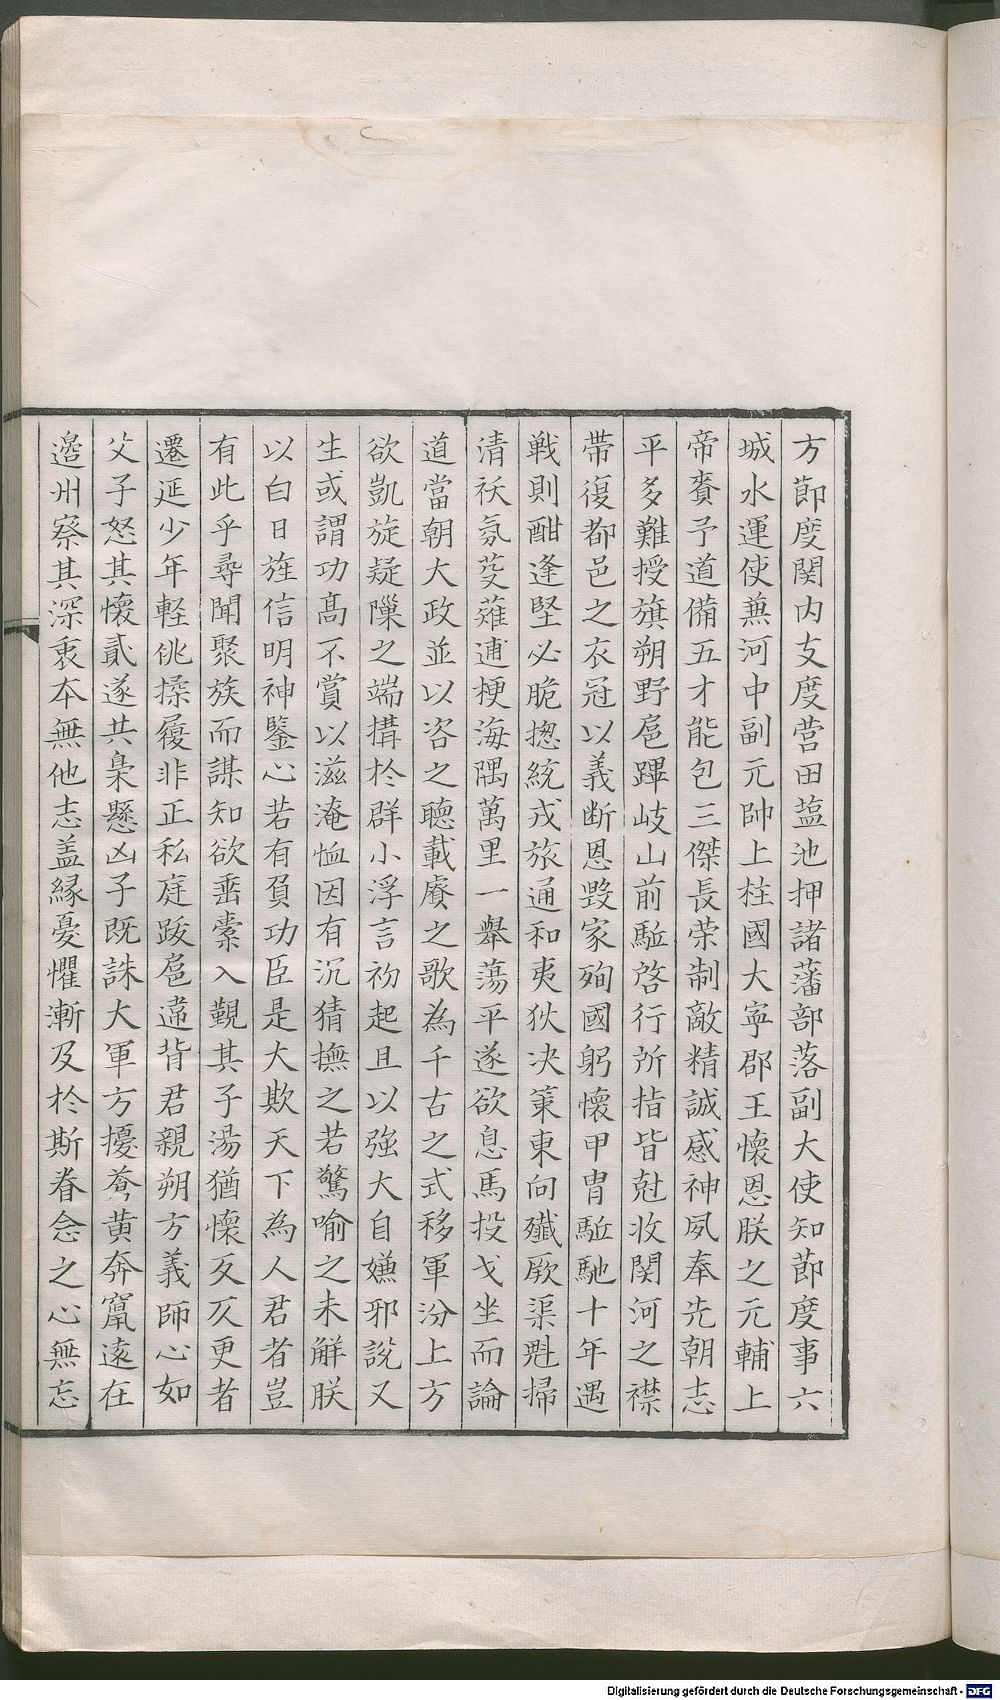 方節度関内支度营田塩池押諸藩部落副大使知節度事六
城水運使兼河中副元帥上柱國大寧郡王懷恩朕之元輔上
帝賚予道備五才能包三傑長荣制敵精誠感神夙奉先朝志
平多難授旗朔野扈蹕岐山前駈啓行所指皆尅收関河之襟
帶復都邑之衣冠以義断恩毀家殉國躬懷甲冑駈馳十年遇
戦則酣逢堅必脆揔統戎旅通和夷狄决策東向殲厥渠魁掃
清祅氛芟薙逋梗海隅萬里一舉蕩平遂欲息馬投戈坐而論
道當朝大政並以咨之聴載賡之歌為千古之式移軍汾上方
欲凱旋疑隟之端搆扵群小浮言初起且以強大自嫌邪說又
生或謂功髙不賞以滋淹恤因有沉猜撫之若驚喻之未解朕
以白日旌信明神鑒心若有負功臣是大欺天下為人君者豈
有此乎尋聞聚族而謀知欲垂橐入覲其子湯猶懷反仄更者
遷延少年軽佻操履非正私庭跋扈違背君親朔方義師心如
父子怒其懷貳遂共梟懸凶子既誅大軍方擾蒼黄奔竄遠在
邉州察其深衷夲無他志盖縁憂懼漸及扵斯眷念之心無忘
Digitalisierung gefördert durch die Deutsche Forschungsgemeinschaft - DFG